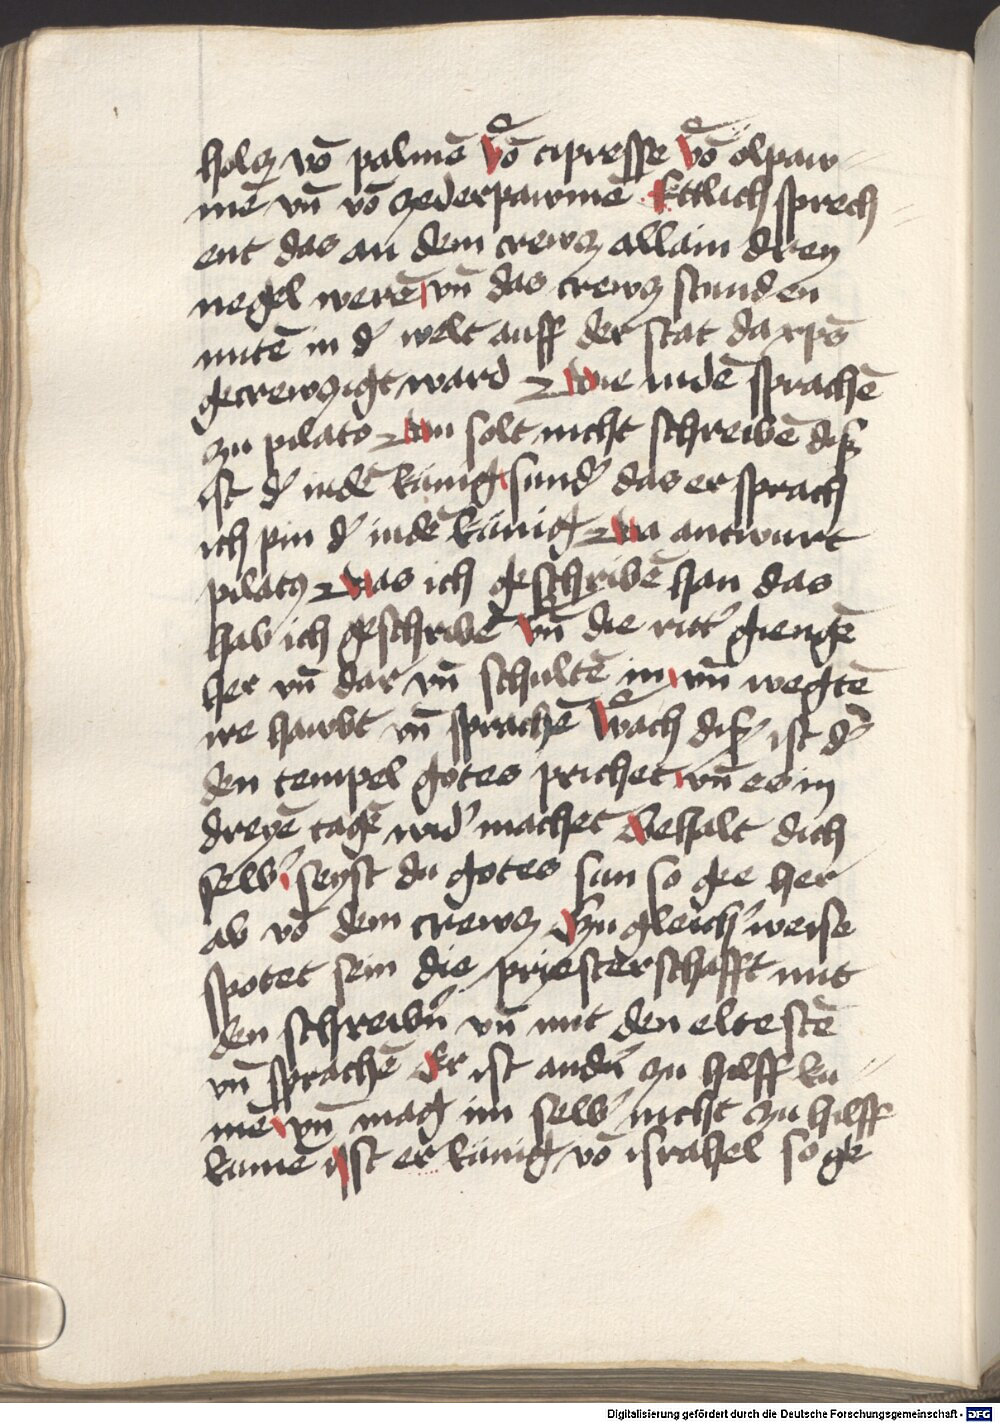 holcz vō palmē Vō cipresse Vō ölpaw⸗
mē vn̄ vō zederpawmē Ettlich sprech⸗
ent das an dem crewcz allain drey
negel werē vn̄ das crewcz stunden
mitē in d' welt auff der stat da xp̄s
gecrewczigt ward Die iudē sprachē
zu pilato Du solt nicht schreibē diß
ist d' iudē künig sund' das er sprach
ich pin d' iudē künig Da antwurt
pilatꝰ Was ich geschribē han das
hab ich geschribē Vn̄ die ritt' giengē
her vn̄ dar vn̄ schultē in vn̄ wegtē
ire hawbt vn̄ sprachē Wach diß ist d'
den tempel gotes prichet vn̄ es in
dreyē tagē wid' machet Behalt dich
selb' seyst du gotes sun so gee her
ab vō dem crewcz Zu gleich' weise
spotet sein die priesterschafft mit
den schreibn̄ vn̄ mit den eltestē
vn̄ sprachē Er ist andn̄ zu hilff ku⸗
mē vn̄ mag im selb' nicht zu hilff
kumē Ist er künig vō israhel so ge
Digitalisierung gefördert durch die Deutsche Forschungsgemeinschaft - DFG